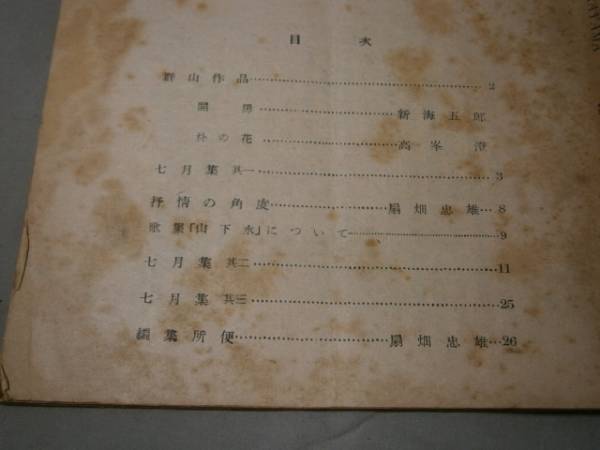 目次
群山作品……………2
開扉……………新海五郎
朴の花……………高峯澄
七月集 其一……………3
抒情の角度……………扇畑忠雄…8
歌集「山下水」について……………9
七月集 其二……………11
七月集 其三……………25
編集所便……………扇畑忠雄…26